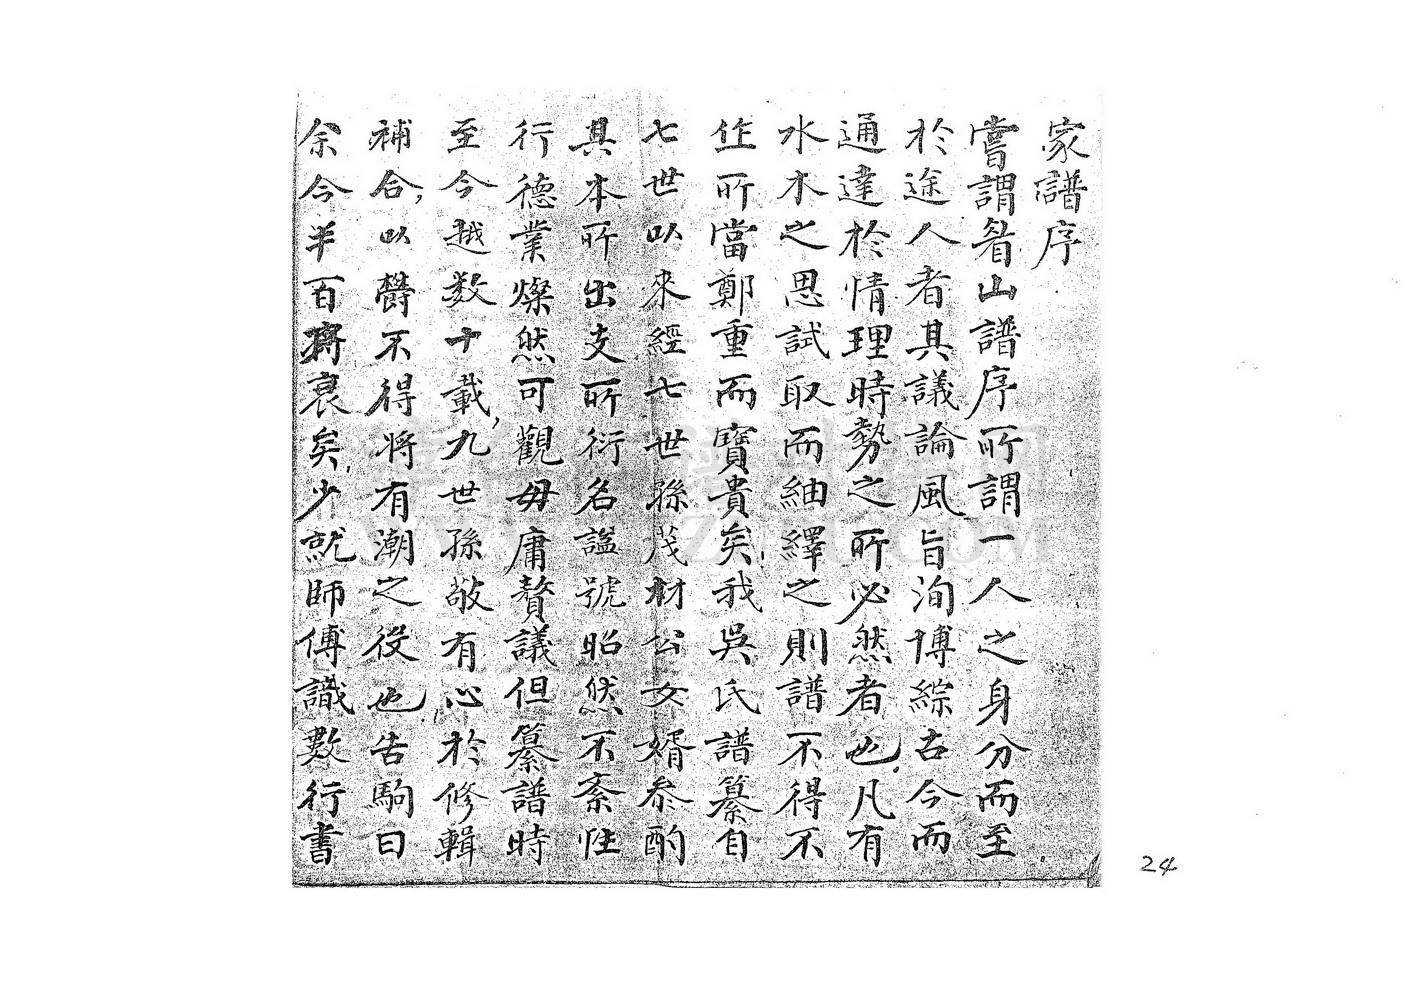 家譜序
嘗謂眉山譜序所謂一人之身分而至
於途人者其議論風旨洵博綜古今而
通達於情理時勢之所必然者也凡有
水木之思試取而紬繹之則譜不得不
作所當鄭重而寶貴矣我吳氏譜纂自
七世以來經七世孫茂材公女婿參酌
具本所出支所衍名諡號昭然不紊性
行德業燦然可觀毋庸贅議但纂譜時
至今越数十載九世孫敬有心於修輯
補合以欝不得将有潮之役也告駒曰
余今半百將衰矣少就師傅識數行書
24